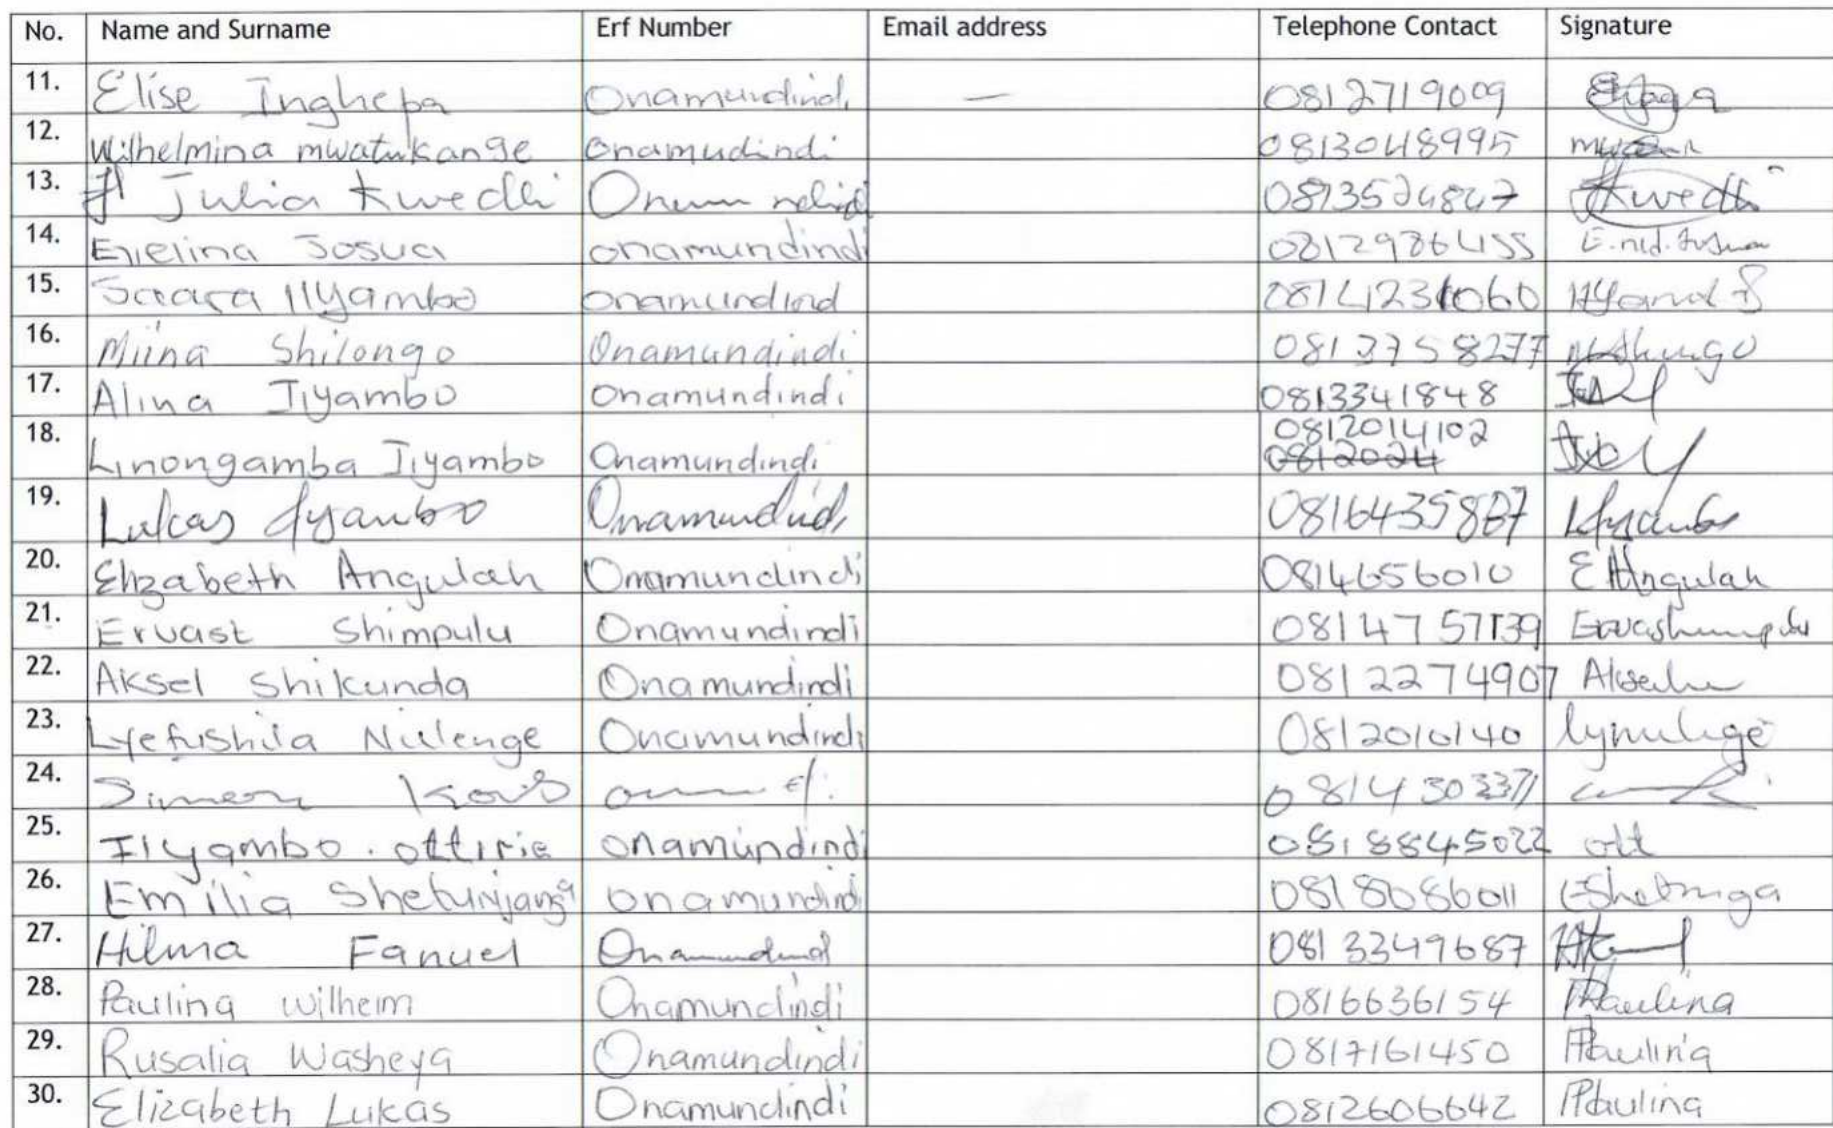 No. Name and Surname Erf Number Email address Telephone Contact Signature
11. Elise Inghepa Onamundindi — 0812719009
12. Wilhelmina mwatukange Onamudindi 0813048995
13. Julia Kwedhi 0813524847 Kwedhi
14. Evelina Josua Onamundindi 0812986455
15. Saara Iiyambo Onamundind 0814231060
16. Miina Shilongo Onamundindi 0813758277
17. Alina Iiyambo Onamundindi 0813341848
18. Linongamba Iiyambo Onamundindi 0812014102
0812024
19. Lukas Iyambo Onamundindi
20. Elizabeth Angulah Onamundindi 0814656010 E Angulah
21. Ervast Shimpulu Onamundindi 0814757139
22. Aksel Shikunda Onamundindi 0812274907
23. Lyefushila Nulenge Onamundindi 0812010140
24. Simon 0814303371
25. Iiyambo. ottirie onamundindi 0818845022 ott
26. Emilia Shetunjanga onamundindi 0818086011
27. Hilma Fanuel 0813349687
28. Paulina wilhelm Onamundindi 0816636154 Paulina
29. Rusalia Washeya Onamundindi 0817161450 Paulina
30. Elizabeth Lukas Onamundindi 0812606642 Paulina